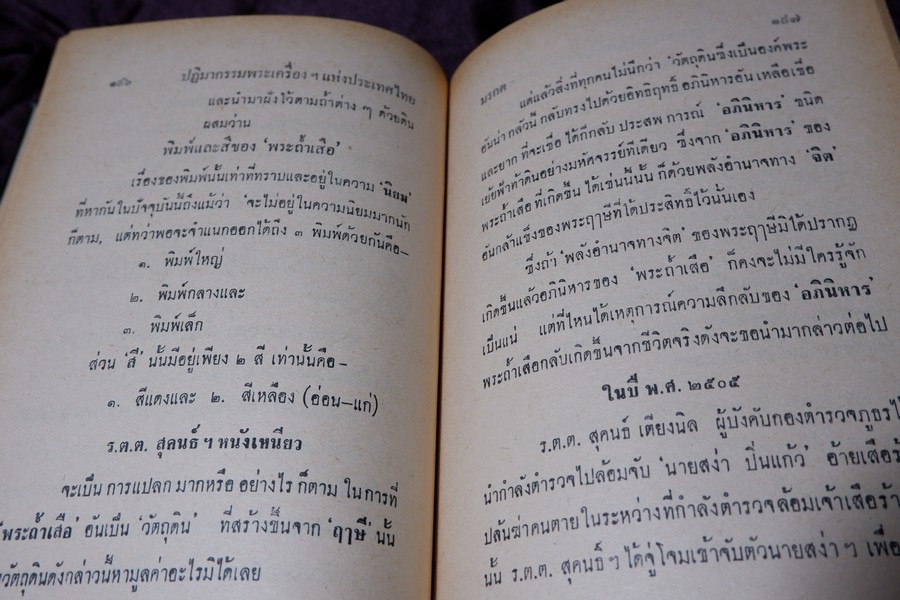 ๑๘๖ ปฏิมากรรมพระเครื่อง ฯ แห่งประเทศไทย
และนำมาฝังไว้ตามถ้ำต่าง ๆ ด้วยดิน
ผสมว่าน
พิมพ์และสีของ 'พระถ้ำเสือ'
เรื่องของพิมพ์นั้นเท่าที่ทราบและอยู่ในความ 'นิยม'
ที่หากันในปัจจุบันนี้ถึงแม้ว่า 'จะไม่อยู่ในความนิยมมากนัก
ก็ตาม, แต่ทว่าพอจะจำแนกออกได้ถึง ๓ พิมพ์ด้วยกันคือ–
๑. พิมพ์ใหญ่
๒. พิมพ์กลางและ
๓. พิมพ์เล็ก
ส่วน 'สี' นั้นมีอยู่เพียง ๒ สี เท่านั้นคือ–
๑. สีแดงและ ๒. สีเหลือง (อ่อน–แก่)
ร.ต.ต. สุคนธ์ ฯ หนังเหนียว
จะเป็น การแปลก มากหรือ อย่างไร ก็ตาม ในการที่
'พระถ้ำเสือ' อันเป็น 'วัตถุดิน' ที่สร้างขึ้นจาก 'ฤาษี' นั้น
วัตถุดินดังกล่าวนี้หามูลค่าอะไรมิได้เลย
มรกต ๑๘๗
แต่แล้วสิ่งที่ทุกคนไม่นึกว่า 'วัตถุดินซึ่งเป็นองค์พระ
อันน่า กลัวนี้ กลับทรงไปด้วยอิทธิฤทธิ์ อภินิหารอัน เหลือเชื่อ
และยาก ที่จะเชื่อ ได้ก็กลับ ประสพ การณ์ 'อภินิหาร' ชนิด
เย้ยฟ้าท้าดินอย่างมหัศจรรย์ทีเดียว ซึ่งจาก 'อภินิหาร' ของ
พระถ้ำเสือ ที่เกิดขึ้น ได้เช่นนี้นั้น ก็ด้วยพลังอำนาจทาง 'จิต'
อันกล้าแข็งของพระฤาษีที่ได้ประสิทธิ์ไว้นั้นเอง
ซึ่งถ้า 'พลังอำนาจทางจิต' ของพระฤาษีมิได้ปรากฏ
เกิดขึ้นแล้วอภินิหารของ 'พระถ้ำเสือ' ก็คงจะไม่มีใครรู้จัก
เป็นแน่ แต่ที่ไหนได้เหตุการณ์ความลึกลับของ 'อภินิหาร'
พระถ้ำเสือกลับเกิดขึ้นจากชีวิตจริงดังจะขอนำมากล่าวต่อไป
ในปี พ.ศ. ๒๕๐๕
ร.ต.ต. สุคนธ์ เตียงนิล ผู้บังคับกองตำรวจภูธร
นำกำลังตำรวจไปล้อมจับ 'นายสง่า ปิ่นแก้ว' อ้ายเสือ
ปล้นฆ่าคนตายในระหว่างที่กำลังตำรวจล้อมเจ้าเสือ
นั้น ร.ต.ต. สุคนธ์ ฯ ได้จู่โจมเข้าจับตัวนายสง่า ฯ เพื่อ